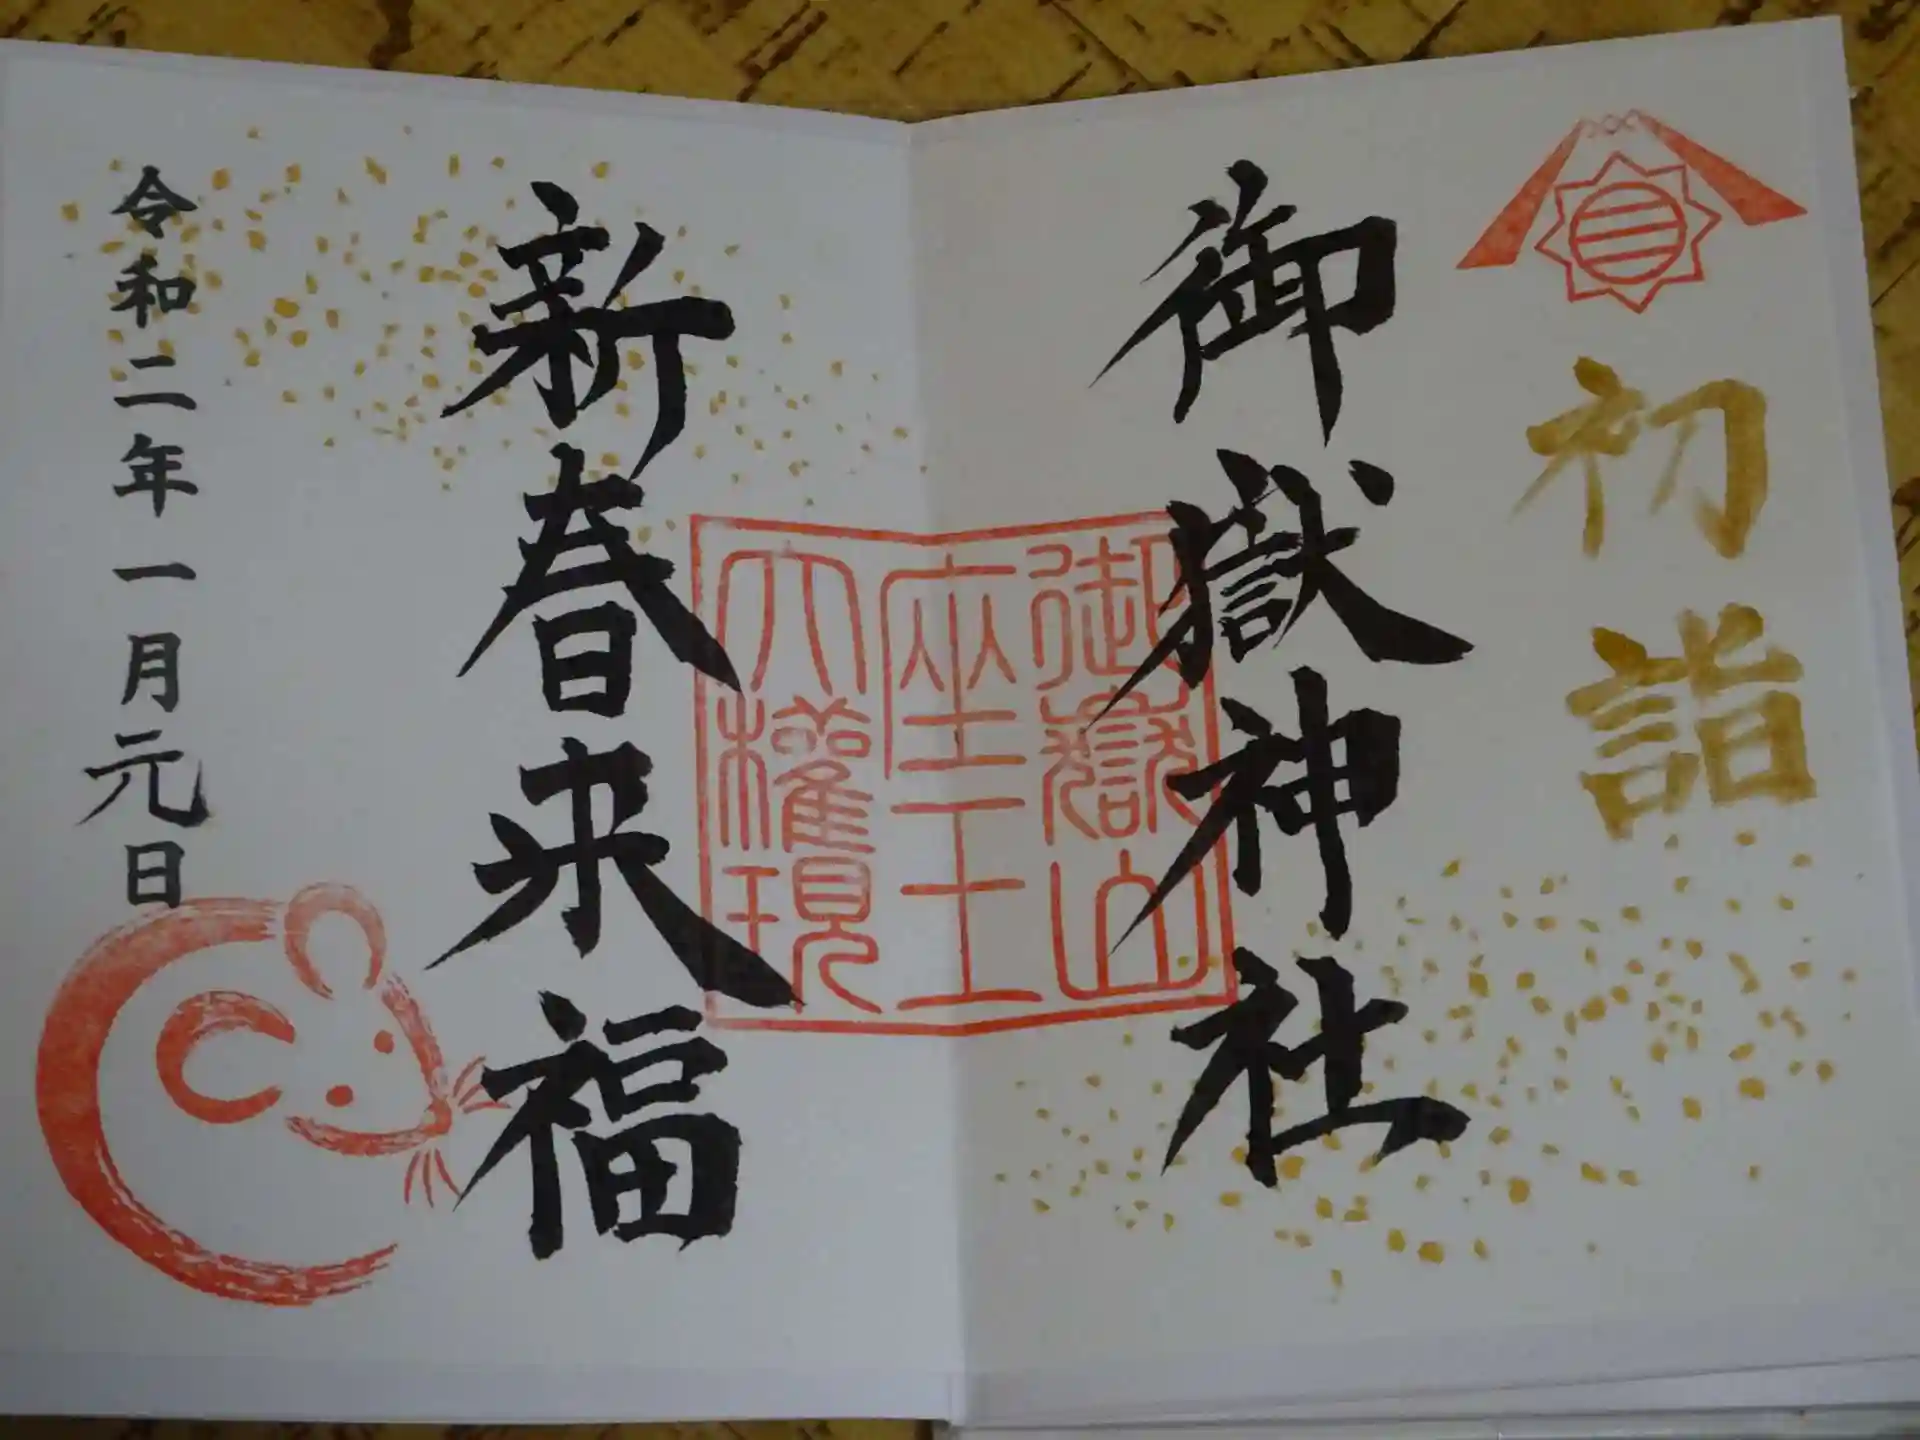 初詣
御嶽神社
御嶽山
座王王
大権現
新春来福
令和二年一月元日